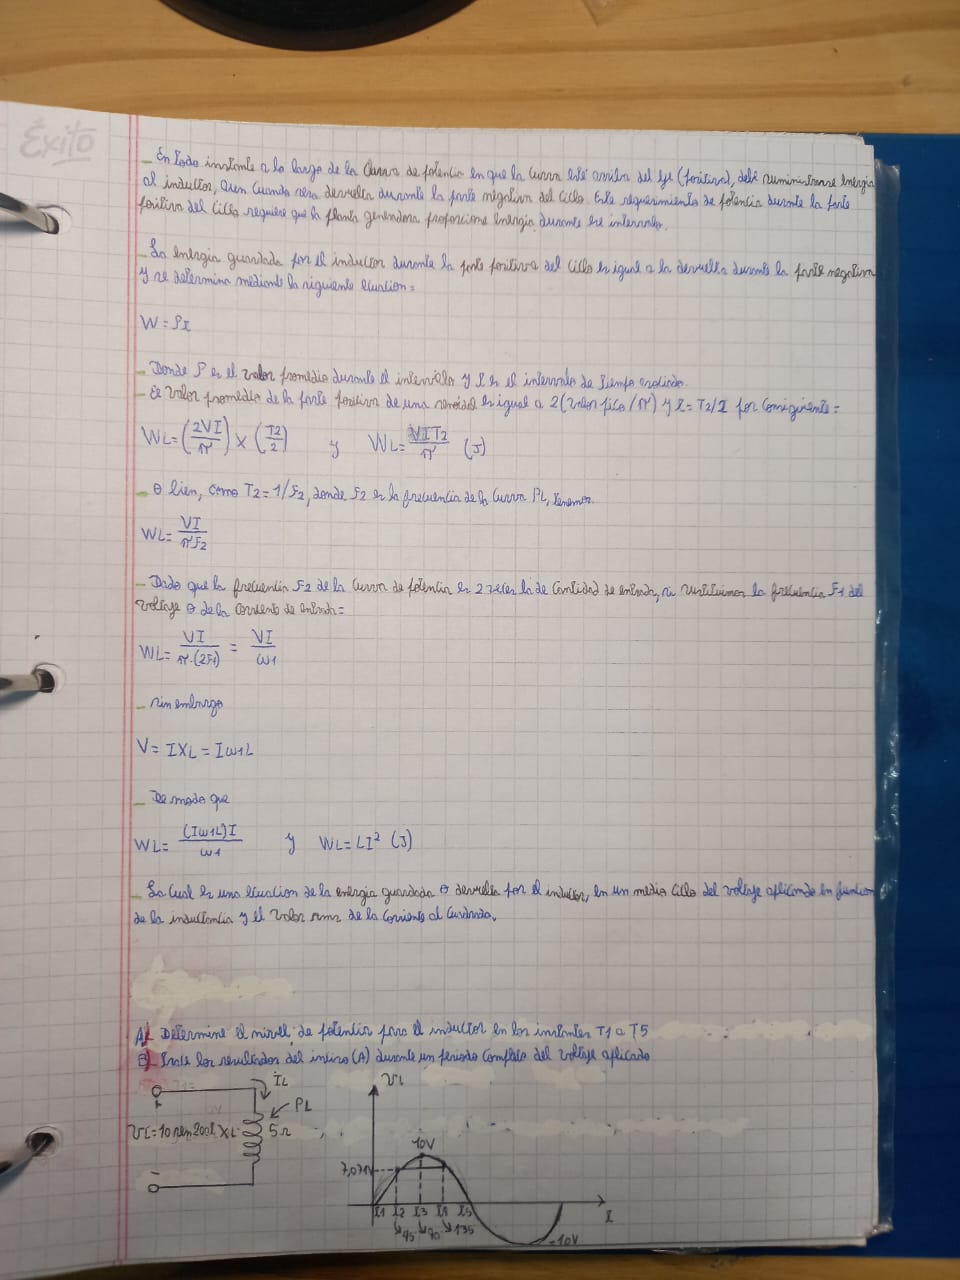 Éxito
_ En todo instante a lo largo de la Curva de potencia en que la curva esté arriba del eje (positiva), debe suministrarse energia
al inductor, aun cuando sea devuelta durante la parte negativa del ciclo. Este requerimiento de potencia durante la parte
positiva del Ciclo requiere que la planta generadora proporcione energia durante ese intervalo.
_ La energia guardada por el inductor durante la parte positiva del Ciclo es igual a la devuelta durante la parte negativa
y se determina mediante la siguiente ecuation=
W = Pt
_ Donde P es el valor promedio durante el intervalo y t es el intervalo de tiempo
_ El Valor promedio de la parte positiva de una senoidal es igual a 2(valor pico/π) y t= T2/2 por consiguiente=
WL=(2VI/π) X (T2/2) y WL= VIT2/π (J)
_ O bien, como T2= 1/F2, donde F2 es la frecuencia de la Curva PL, tenemos.
WL= VI/πF2
_ Dado que la frecuencia F2 de la Curva de potencia es 2 veces la de Cantidad de entrada, si sustituimos la frecuencia F1 del
voltaje O de la corriente de entrada=
WL= VI/π.(2F1) = VI/ω1
_ sin embargo
V= IXL = Iω1L
_ De modo que
WL= (Iω1L)I/ω1 y WL= LI² (J)
_ La Cual es una ecuation de la energia guardada O devuelta por el inductor, en un medio Ciclo del voltaje aplicando en funcion
de la inductancia y el Valor rms de la Corriente al Cuadrado.
A) Determine el nivel de potencia para el inductor en los instantes T1 a T5
B) Trace los resultados del inciso (A) durante un periodo completo del voltaje aplicado
iL
PL
+
VL=10 sen200t XL 5Ω
-
VL
10V
7,071V
t1 t2 t3 t4 t5 t
45 90 135
-10V